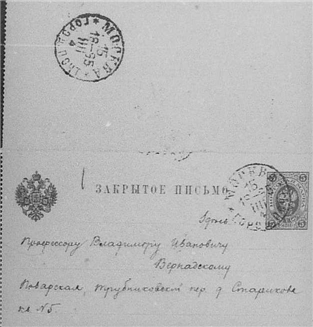 МОСКВА
ГОРОД.
ЗАКРЫТОЕ ПИСЬМО
МОСКВА
5
5
Здѣсь
Профессору Владиміру Ивановичу
Вернадскому
Поварская, Трубниковскій пер. д. Старикова
кв N5.